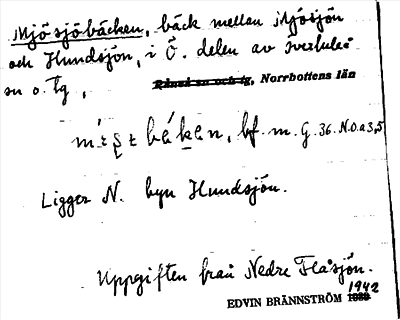 Mjösjöbäcken, bäck mellan Mjösjön
och Hundsjön, i Ö. delen av överluleå
sn o. tg, Råneå sn och tg, Norrbottens län
bf. m. G. 36. N.O.a3,5
Ligger N. byn Hundsjön.
Uppgiften från Nedre Flåsjön.
1942
EDVIN BRÄNNSTRÖM